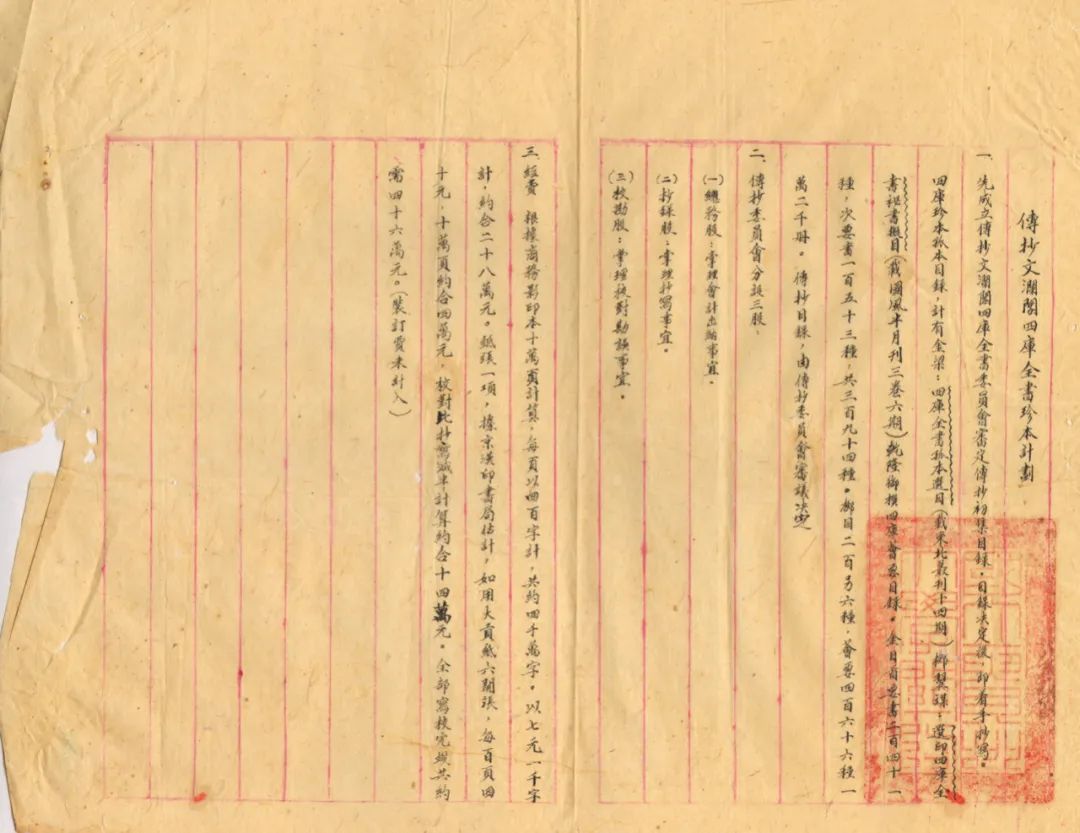 傳抄文瀾閣四庫全書珍本計劃
一、先成立傳抄文瀾閣四庫全書委員會審定傳抄初集目錄。目錄決定後，即着手抄寫。
四庫珍本孤本目錄，計有金梁：四庫全書孤本選目（載東北叢刊十四期）鄉製謀：選印四庫全
書秘書擬目（載國風半月刊三卷六期）乾隆御撰四庫薈要目錄。金目員要書二百四十一
種，次要書一百五十三種，共三百九十四種。鄉目二百另六種，薈要四百六十六種一
萬二千册。傳抄目錄，由傳抄委員會審議決定
二、傳抄委員會分設三股：
（一）總務股：掌理會計出納事宜。
（二）抄錄股：掌理抄寫事宜。
（三）校勘股：掌理校對勘誤事宜。
三、經費　根據商務影印本十萬頁計算，每頁以四百字計，共約四千萬字。以七元一千字
計，約合二十八萬元。紙張一項，據京漢印書局估計，如用大貢紙六開張，每百頁四
十元，十萬頁約合四萬元，校對比抄寫減半計算約合十四萬元。全部寫校完竣共約
需四十六萬元。（裝訂費未計入）